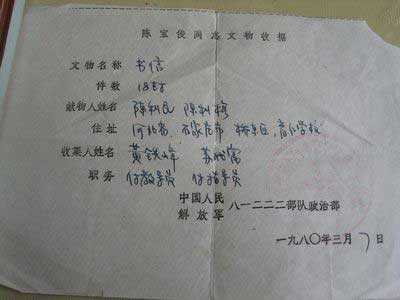 陈宝俊同志文物收据
文物名称 书信
件数 18封
献物人姓名 陈利民 陈利
住址 河北省 石家庄市 桥东区
收集人姓名 黄铁峰
职务 付教导员 付指导员
中国人民
解放军 八一二二二部队政治部
一九八〇年三月7日